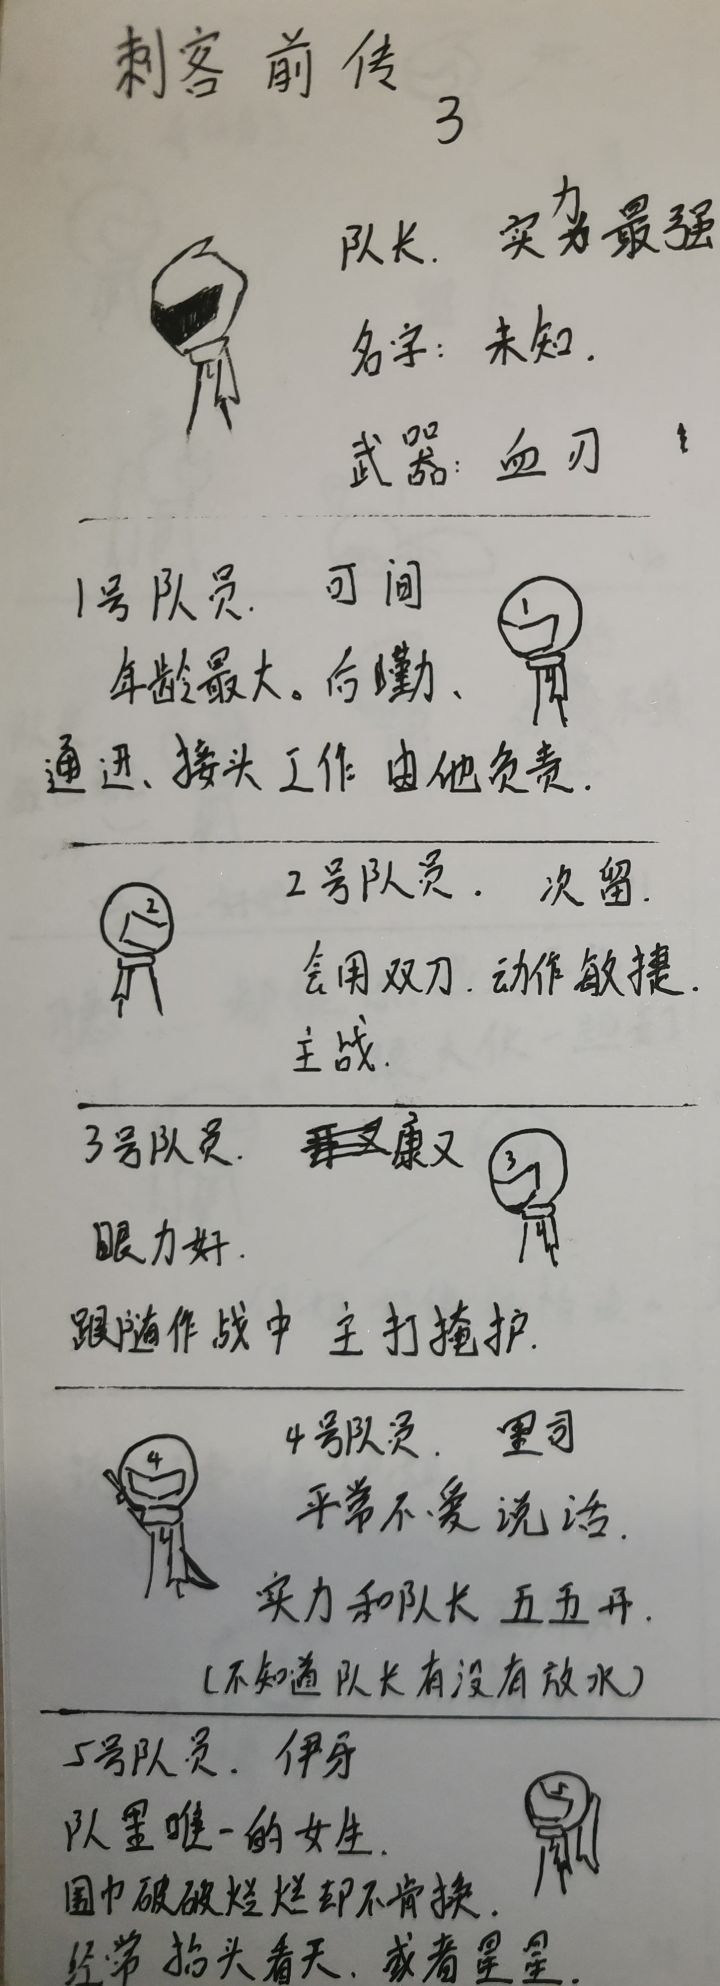 刺客前传
3
队长. 实力最强
名字: 未知.
武器: 血刃
1号队员. 可间
年龄最大。后勤、
通进、接头工作由他负责.
2号队员. 次留.
会用双刀. 动作敏捷.
主战.
3号队员. 康又
眼力好.
跟随作战中 主打掩护.
4号队员. 里司
平常不爱说话.
实力和队长五五开.
(不知道队长有没有放水)
5号队员. 伊牙
队里唯一的女生.
围巾破破烂烂却不肯换.
经常抬头看天. 或者星星.
1
2
3
4
5